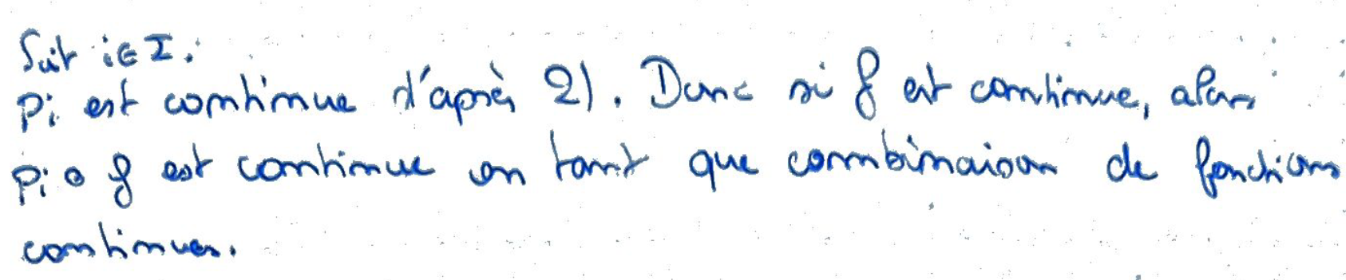 Soit i ∈ I.
pi est continue d'après 2). Donc si f est continue, alors
pi ∘ f est continue en tant que combinaison de fonctions
continues.